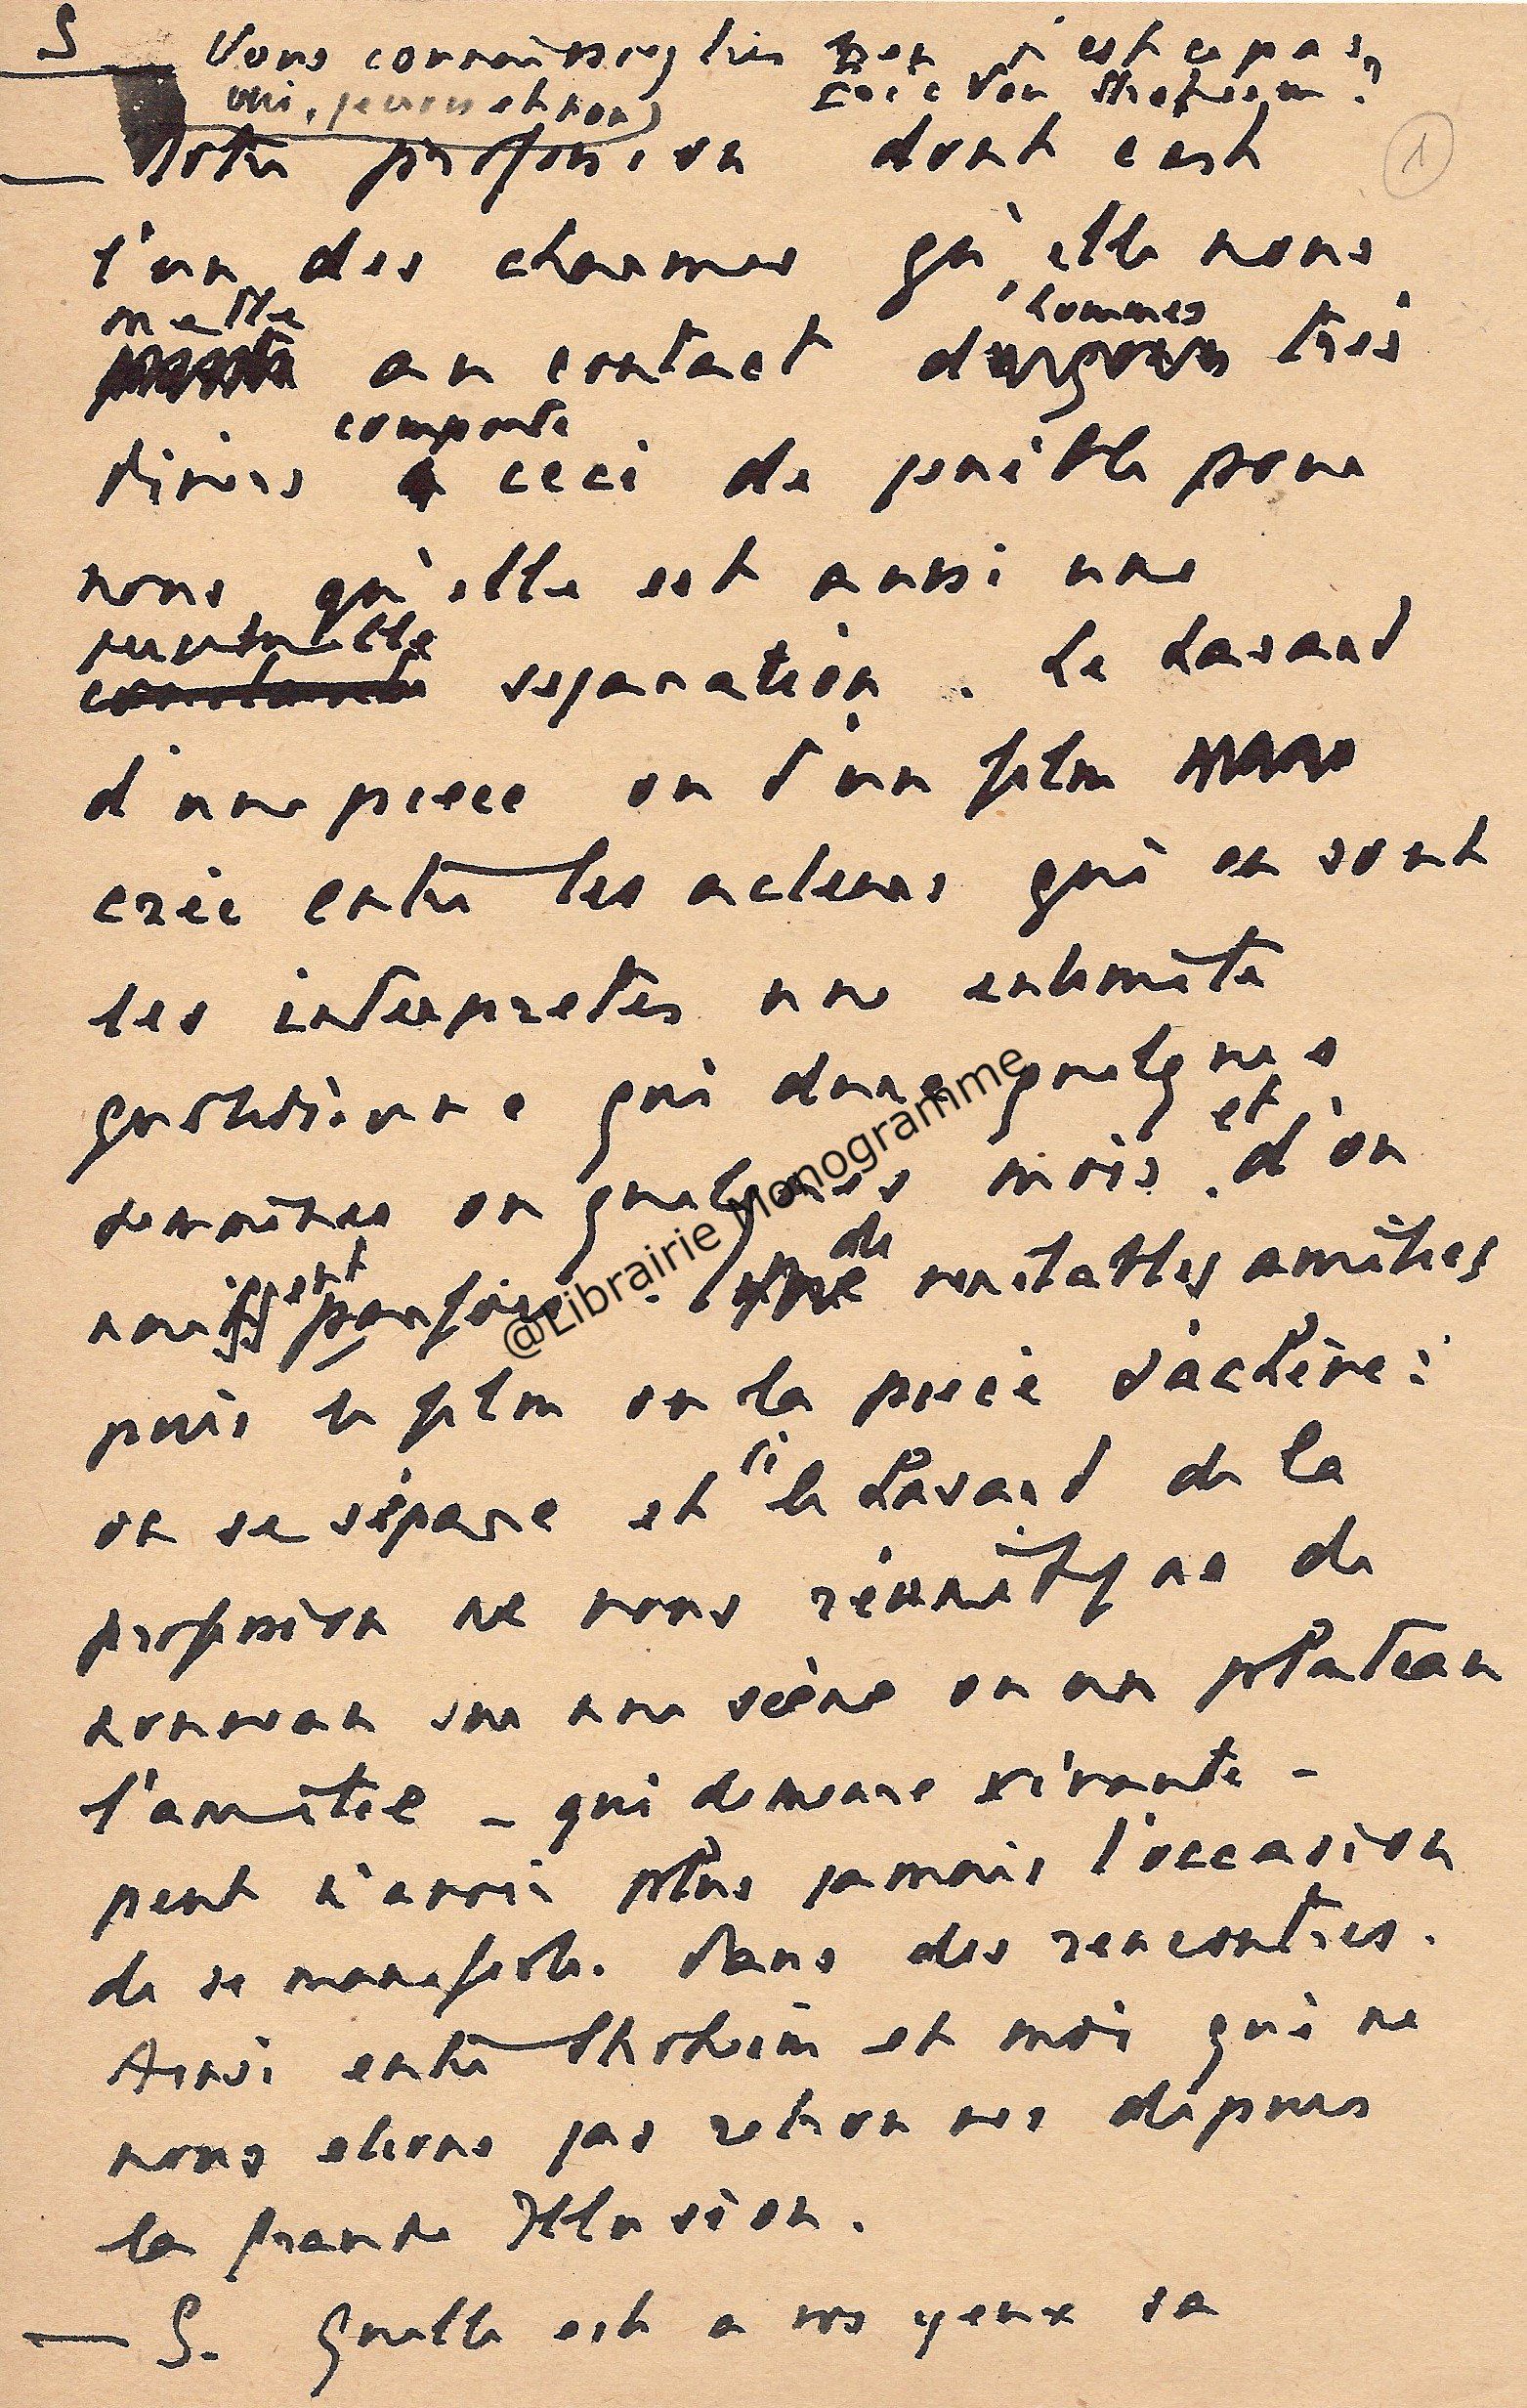 S Vous connaissiez très bien n'est ce pas,
Eric Von Stroheim ?
oui, pour et non
1
— Notre profession dont c'est
l'un des charmes qu'elle nous
mette
au contact d'hommes très
divers comporte ceci de pénible pour
nous qu'elle est aussi une
perpetuelle
separation. Le hasard
d'une piece ou d'un film
crée entre les acteurs qui en sont
les interpretes une intimité
quotidienne qui dure quelques
semaines ou quelques mois et d'où
naissent parfois de veritables amitiés
puis le film ou la piece s'achève :
on se sépare et si le hasard de la
profession ne nous réunit pas de
nouveau sur une scène ou un plateau
l'amitié – qui demeure vivante –
peut n'avoir plus jamais l'occasion
de se manifester. Dans des rencontres.
Ainsi entre Stroheim et moi qui ne
nous etions pas retrouves depuis
la Grande Illusion.
— S. Quelle est a vos yeux sa
@Librairie Monogramme